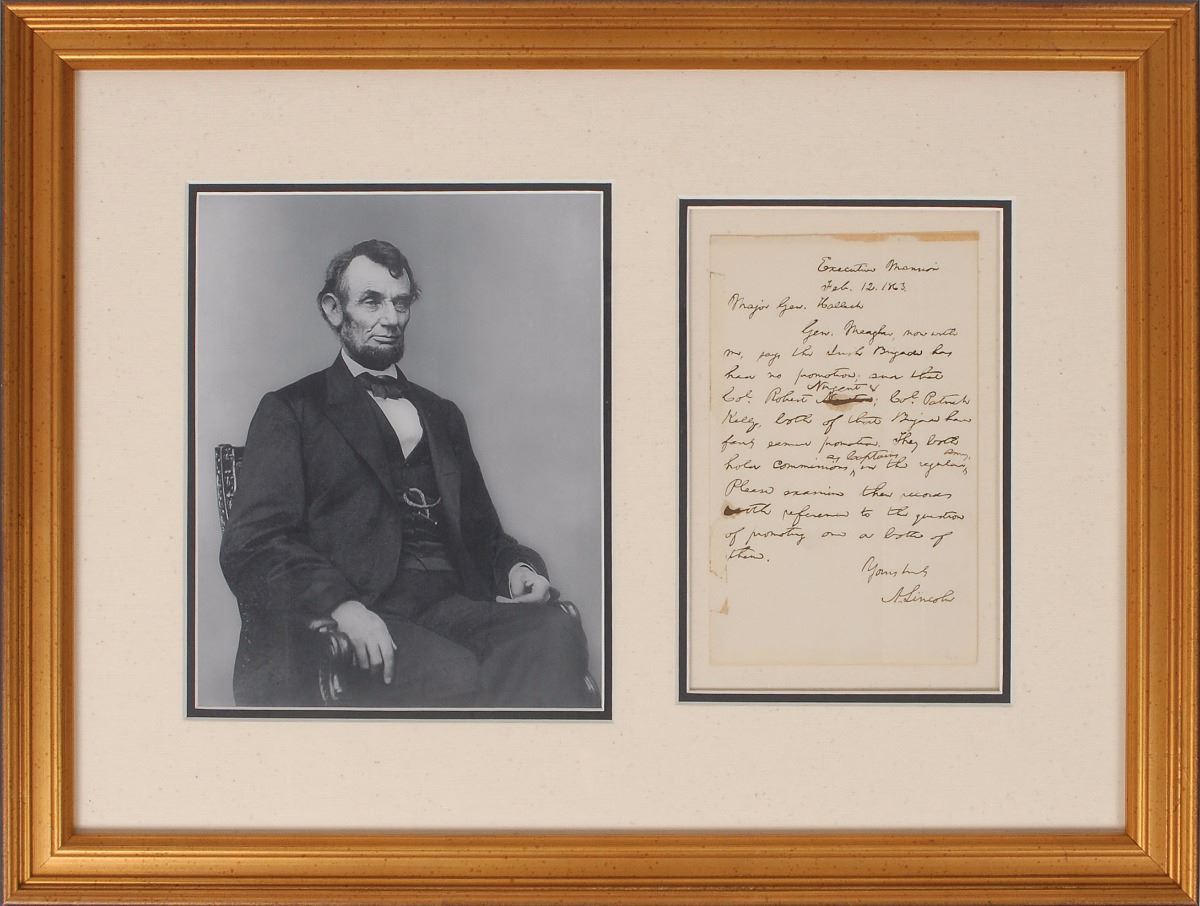 Executive Mansion
Feb. 12. 1863.
Major Gen. Halleck
Gen. Meagher, now with
me, says the Irish Brigade has
had no promotion; and that
Nugent &
Col. Robert Col. Patrick
Kelly, both of that Brigade have
fairly earned promotion. They both
as Captains Army.
hold commissions, in the regular
Please examine their records
with reference to the question
of promoting one or both of
them.
Yours truly
A. Lincoln